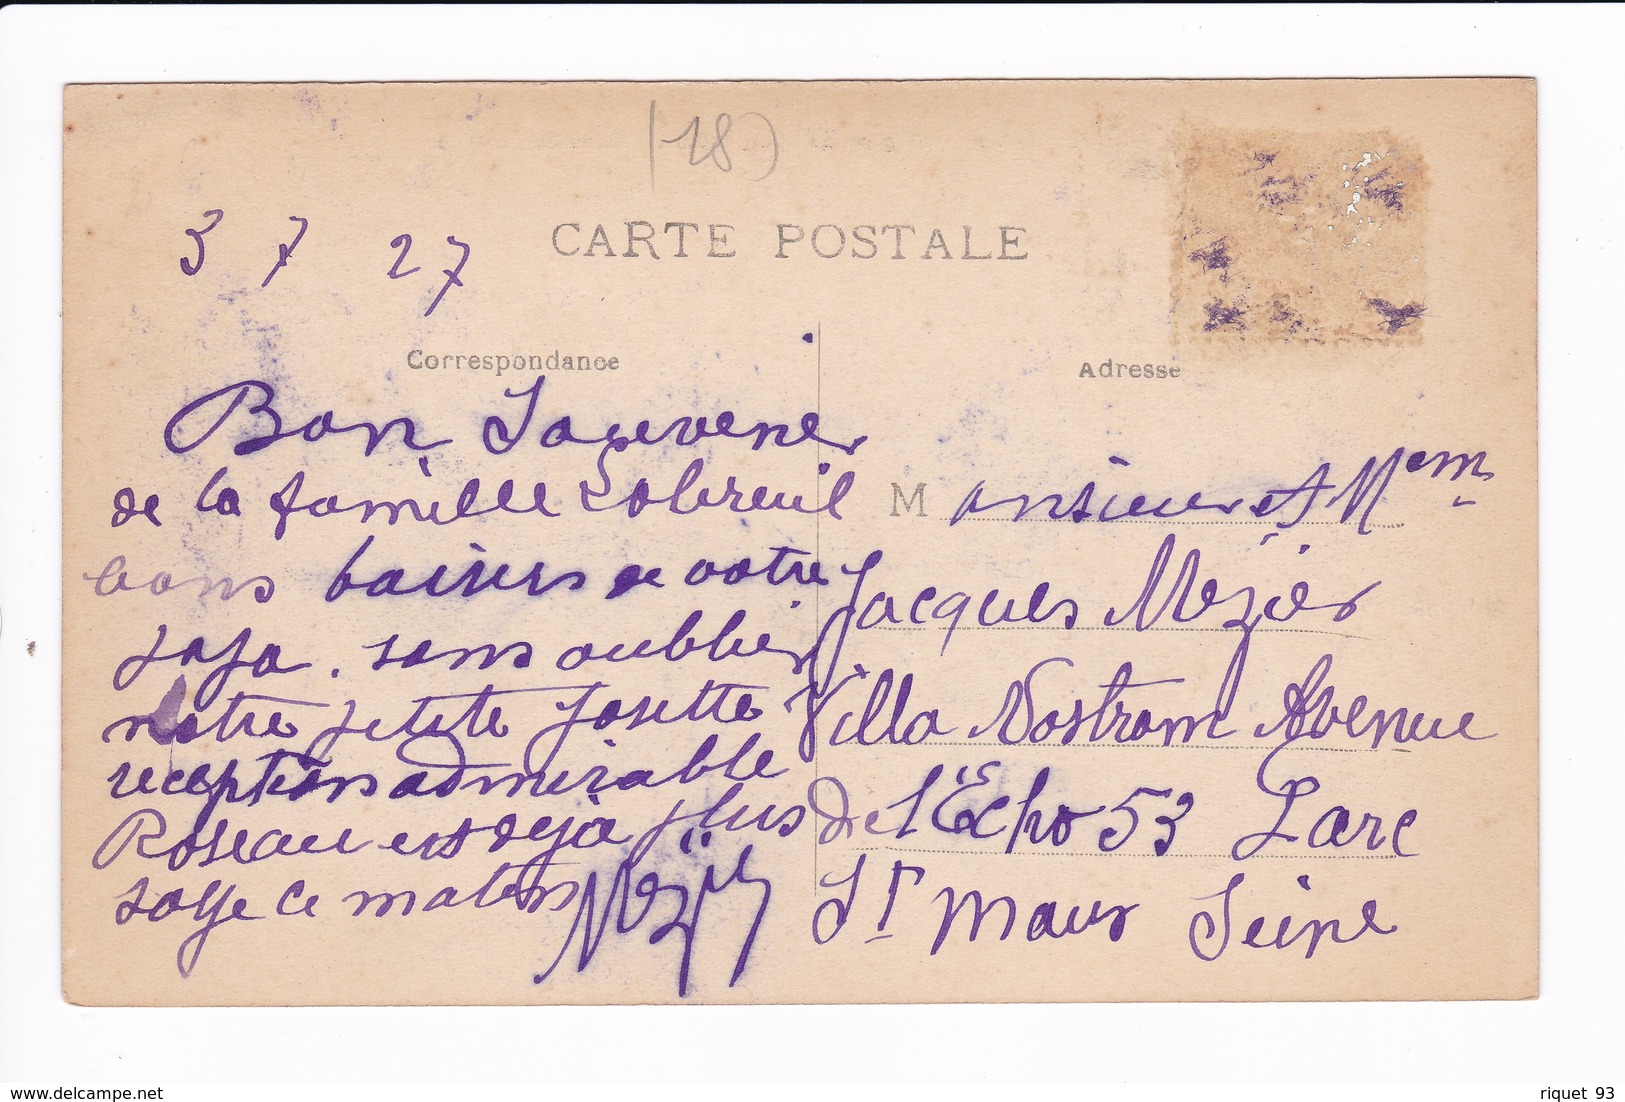 (18)
3 7 27
CARTE POSTALE
Correspondance
Bon Souvenir
de la famille Lobreuil
bons baisers de votre
jojo. sans oublier
notre petite Josette
reception admirable
Roseau est deja plus
sage ce matin
Adresse
Monsieur et Mem
Jacques Mezier
Villa Nostrom Avenue
de l'Echo 53 Parc
St Maur Seine
riquet 93